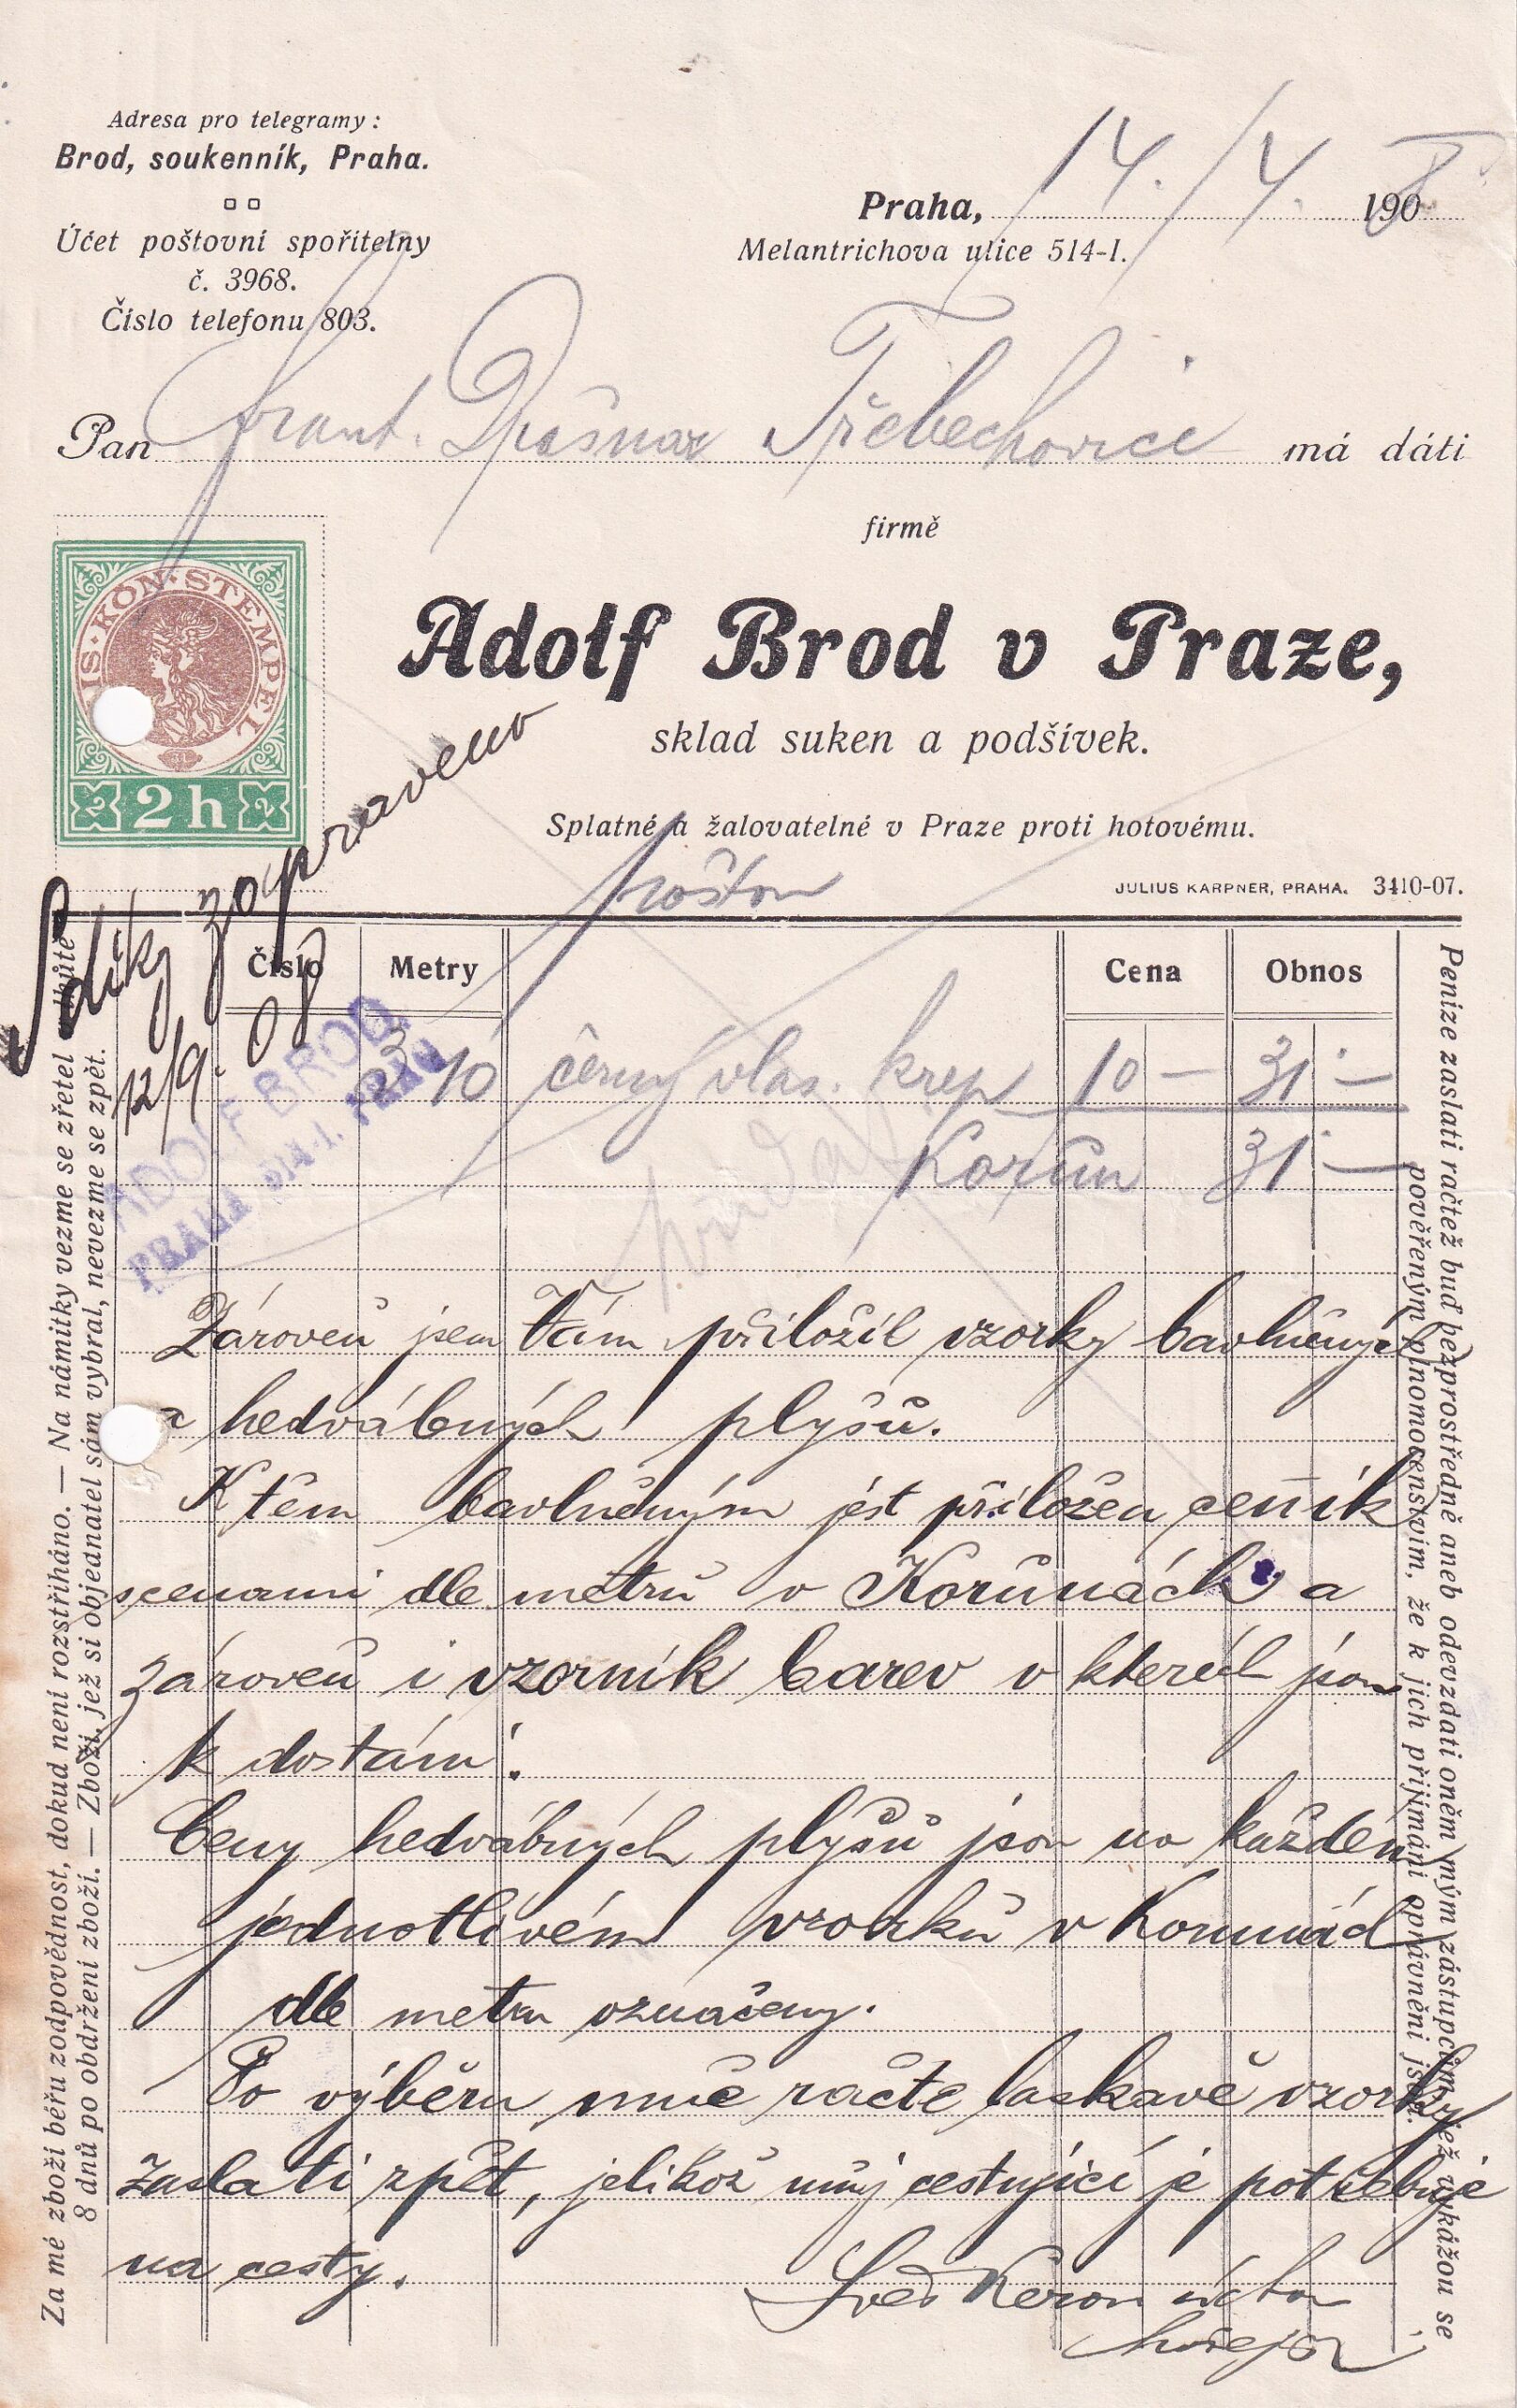 Adresa pro telegramy:
Brod, soukenník, Praha.
Účet poštovní spořitelny
č. 3968.
Číslo telefonu 803.
Praha, 14./4. 1908
Melantrichova ulice 514-I.
Pan Frant. Třebechovice má dáti
firmě
Adolf Brod v Praze,
sklad suken a podšívek.
Splatné a žalovatelné v Praze proti hotovému.
JULIUS KARPNER, PRAHA. 3410-07.
KÖN·STEMPEL
2 2h 2
poštou
S díky zapraveno
12/9. 08
ADOLF BROD,
PRAHA 514-I. PRAG
Číslo Metry Cena Obnos
3 10 černý vlas. krep 10 — 31 —
Korun 31 —
Zároveň jsem Vám přiložil vzorky bavlněných
a hedvábných plyšů.
K těm bavlněným jest přiložen ceník
s cenami dle metrů v Korunách a
zároveň i vzorník barev v kterých jsou
k dostání.
Ceny hedvábných plyšů jsou na každém
jednotlivém vzorku v Korunách
dle metru označeny.
Po výběru mně račte laskavě vzorky
zaslati zpět, jelikož můj cestující je potřebuje
na cesty.
úctou
Za mé zboží béřu zodpovědnost, dokud není rozstříháno. — Na námitky vezme se zřetel ve lhůtě
8 dnů po obdržení zboží. — Zboží, jež si objednatel sám vybral, nevezme se zpět.
Peníze zaslati račtež buď bezprostředně aneb odevzdati oněm mým zástupcům, jež vykážou se
pověřeným plnomocenstvím, že k jich přijímání oprávněni jsou.